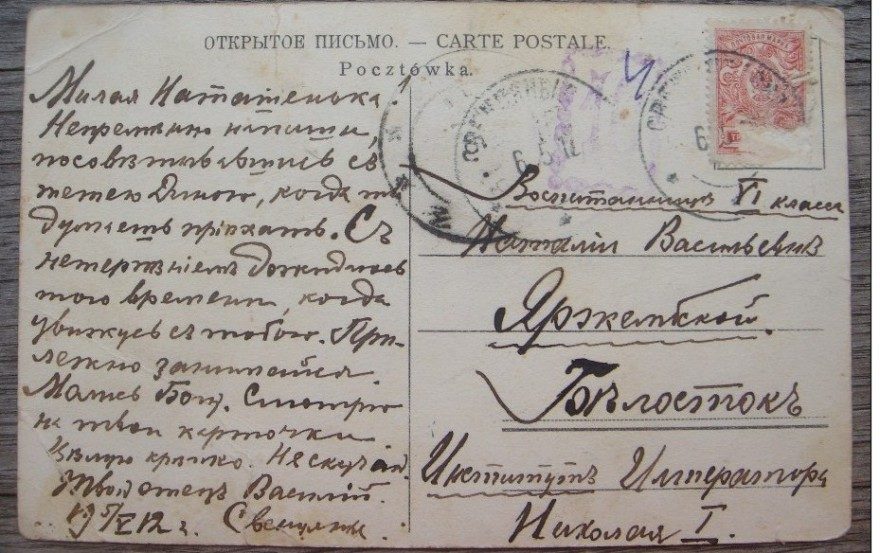 ОТКРЫТОЕ ПИСЬМО. — CARTE POSTALE.
Pocztówka.
Милая Наташенька!
Непремѣнно напиши,
посовѣтывавшись съ
тетею Диною, когда ты
думаешь пріѣхать. Съ
нетерпѣніемъ дожидаюсь
того времени, когда
увижусь съ тобою. При-
лежно занимайся.
Молись Богу. Смотрю
на твои карточки
Цѣлую крѣпко. Не скучай.
Твой отецъ Василій.
19 5/V 12 г. Свенцяны.
СВЕНЦЯНЫ
6 5 12
Воспитанницѣ VI класса
Наталіи Васильевнѣ
Яржемской.
Бѣлостокъ
Институтъ Императора
Николая I.